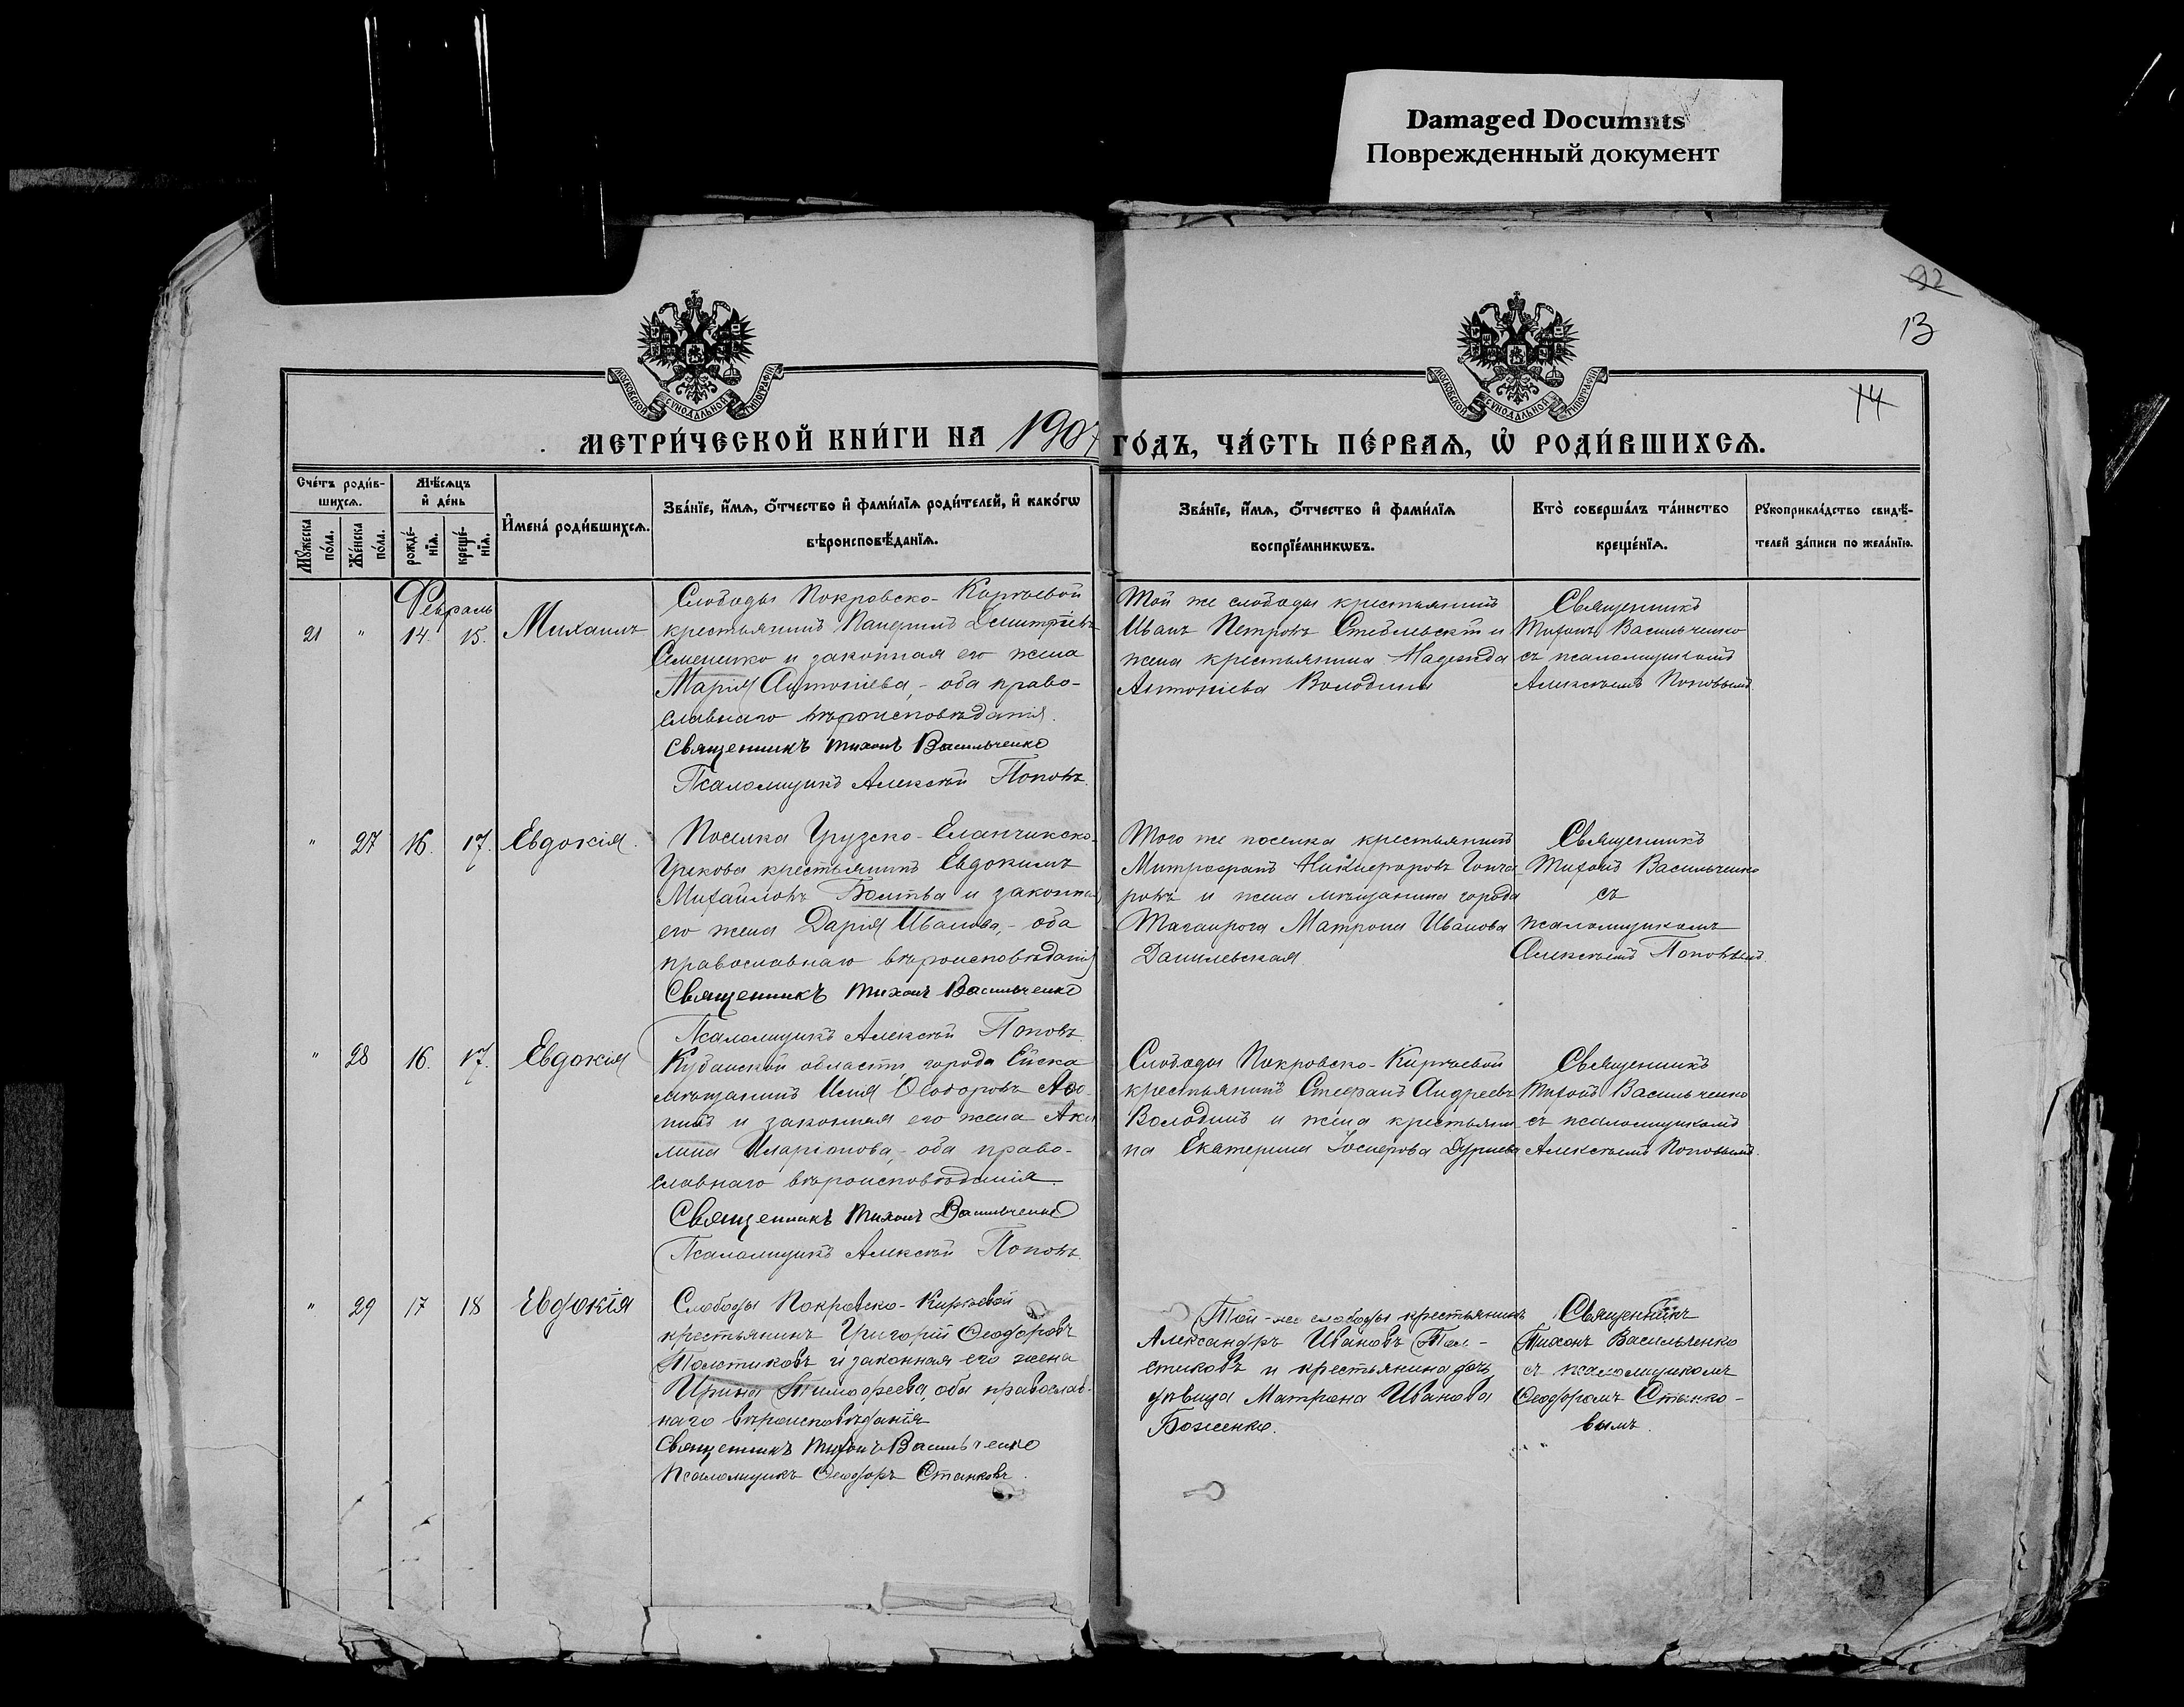 Damaged Documnts
Поврежденный документ
92
13
14
МОСКОВСКОЙ СѴНОДАЛЬНОЙ ТИПОГРАФІИ
МОСКОВСКОЙ СѴНОДАЛЬНОЙ ТИПОГРАФІИ
МЕТРИ́ЧЕСКОЙ КНИ́ГИ НА 1907 ГО́ДЪ, ЧА́СТЬ ПЕ́РВАѦ, Ѡ҆ РОДИ́ВШИХСѦ.
Сче́тъ роди́в-
шихсѧ.
Мꙋ́жеска по́ла.
Же́нска по́ла.
Мѣ́сѧцъ
и҆ де́нь
рожде́-
нїѧ.
креще́-
нїѧ.
И҆мена̀ роди́вшихсѧ.
Зва́нїе, и҆́мѧ, ѻ҆́тчество и҆ фами́лїѧ роди́телей, и҆ како́гѡ
вѣроисповѣ́данїѧ.
Зва́нїе, и҆́мѧ, ѻ҆́тчество и҆ фами́лїѧ
воспрїе́мникѡвъ.
Кто̀ соверша́лъ та́инство
креще́нїѧ.
Рꙋкоприкла́дство свидѣ́-
телей за́писи по жела́нїю.
Февраль
21 " 14. 15. Михаилъ
Слободы Покровско-Киреевой
крестьянинъ Дмитріевъ
Семененко и законная его жена
Марія Антоніева, - оба право-
славнаго вѣроисповѣданія.
Священникъ Тихонъ Васильченко
Псаломщикъ Алексѣй Поповъ.
Той же слободы крестьянинъ
Иванъ Петровъ и
жена крестьянина Надежда
Антоніева Володина
Священникъ
Тихонъ Васильченко
съ псаломщикомъ
Алексѣемъ Поповымъ.
" 27 16. 17. Евдокія.
Поселка Грузско-Еланчикско-
крестьянинъ Евдокимъ
Михайловъ и законная
его жена Дарія Иванова, - оба
православнаго вѣроисповѣданія
Священникъ Тихонъ Васильченко
Псаломщикъ Алексѣй Поповъ.
Того же поселка крестьянинъ
Митрофанъ Никифоровъ Гонча-
ровъ и жена мѣщанина города
Таганрога Матрона Иванова
Данилевская
Священникъ
Тихонъ Васильченко
съ
псаломщикомъ
Алексѣемъ Поповымъ.
" 28 16. 17. Евдокія
Кубанской области, города Ейска
мѣщанинъ Илія Ѳеодоровъ
и законная его жена Аки-
лина Иларіонова, - оба право-
славнаго вѣроисповѣданія.
Священникъ Тихонъ Васильченко
Псаломщикъ Алексѣй Поповъ.
Слободы Покровско-Киреевой
крестьянинъ Стефанъ Андреевъ
Володинъ и жена крестьяни-
на Екатерина Іосифова
Священникъ
Тихонъ Васильченко
съ псаломщикомъ
Алексѣемъ Поповымъ.
" 29 17 18 Евдокія
Слободы Покровско-Киреевой
крестьянинъ Григорій Ѳеодоровъ
Толстиковъ и законная его жена
Ирина Тимофеева, оба православ-
наго вѣроисповѣданія
Священникъ Тихонъ Васильченко
Псаломщикъ Ѳеодоръ Станковъ.
Той-же слободы крестьянинъ
Александръ Ивановъ Тол-
стиковъ и крестьянина дочь
дѣвица Матрона Иванова
Боженко.
Священникъ
Тихонъ Васильченко
съ псаломщикомъ
Ѳеодоромъ Станко-
вымъ.